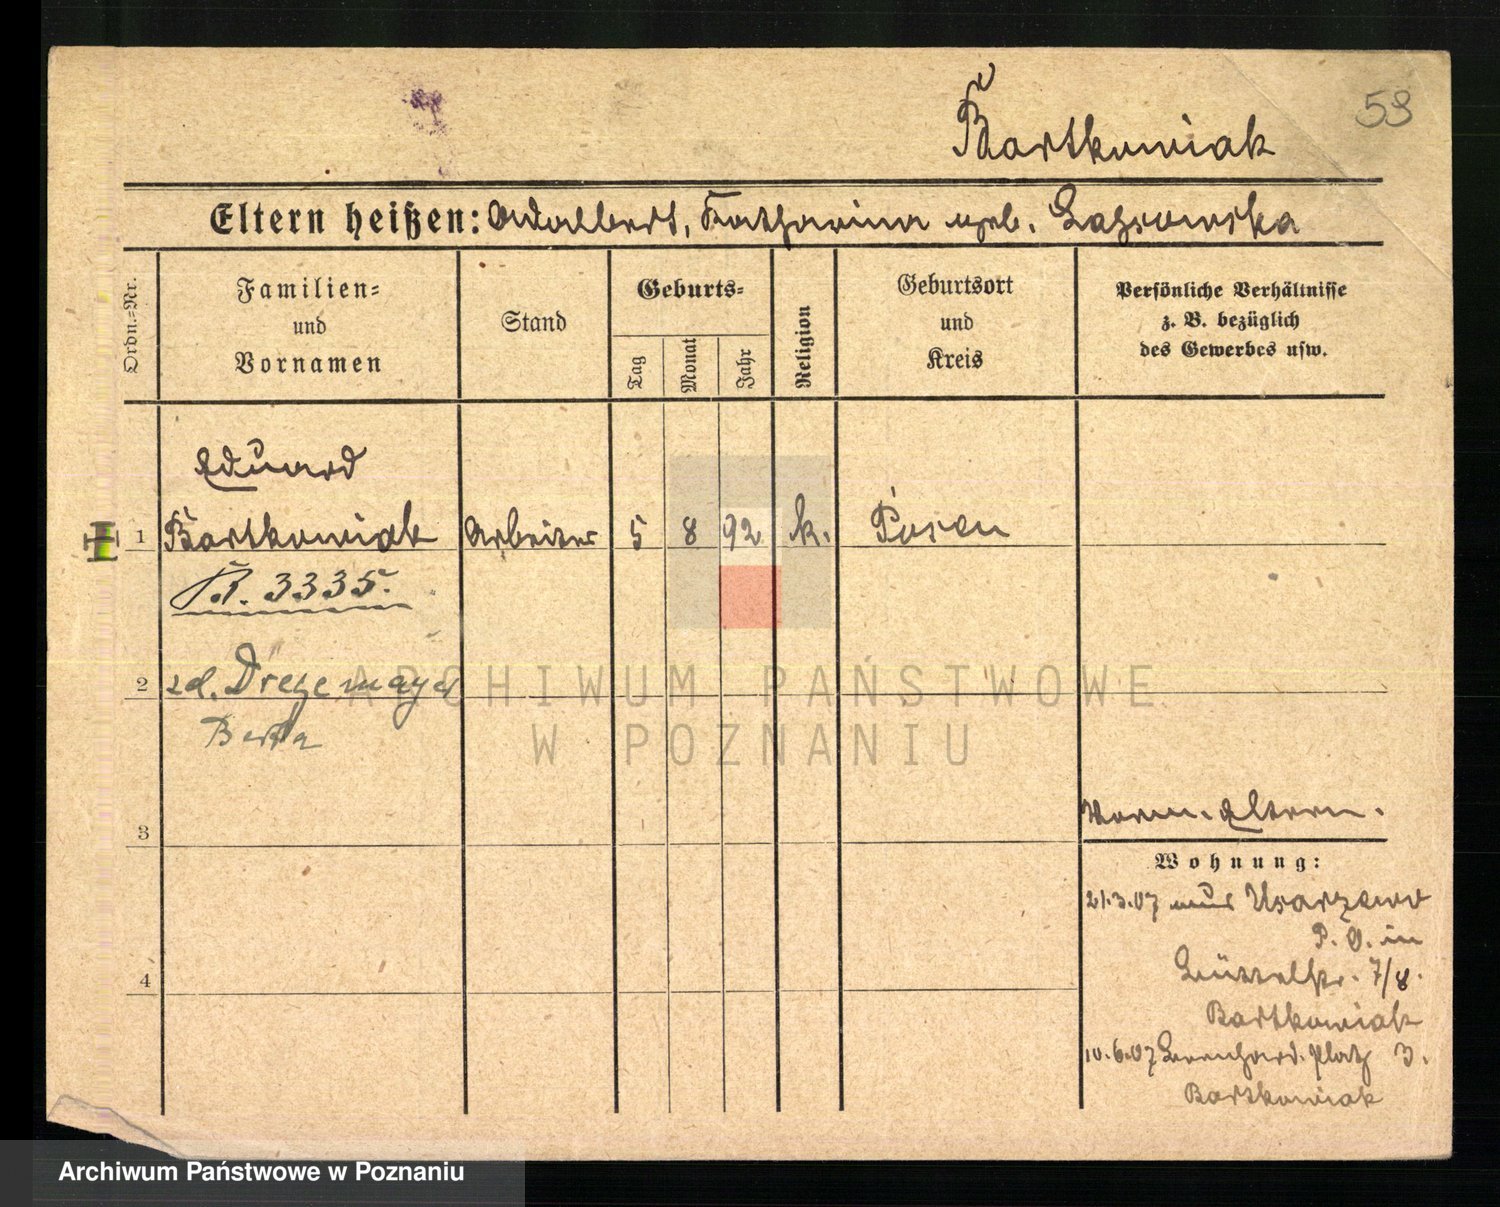 59
Bartkowiak
Eltern heißen: Adalbert, Katharina geb.
Ordn.-Nr.
Familien-
und
Vornamen
Stand
Geburts-
Tag
Monat
Jahr
Religion
Geburtsort
und
Kreis
Persönliche Verhältnisse
z. B. bezüglich
des Gewerbes usw.
Eduard
1 Bartkowiak Arbeiter 5 8 92 k. Posen
K. 3335.
2 Dregemayer
Berta
3
Eltern.
Wohnung:
21.3.07 aus Usarzewo
P. O. in
7/8.
Bartkowiak
4
10.6.07 Bernhard. Platz 3.
Bartkowiak
ARCHIWUM PAŃSTWOWE
W POZNANIU
Archiwum Państwowe w Poznaniu